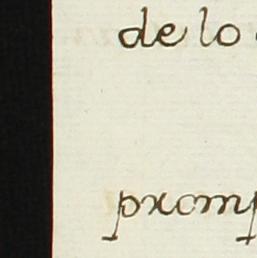 de lo
promp